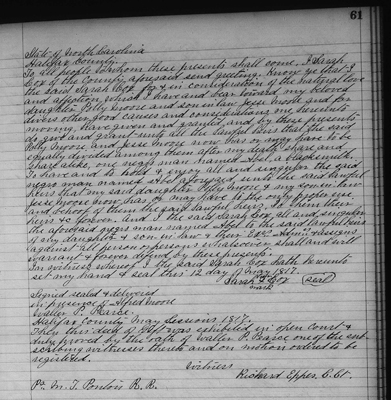 61
State of North Carolina
Halifax County.
To all people to whom these presents shall come, I Sarah
Cox of the County aforesaid send greeting. Know ye that I
the said Sarah Cox for & in consideration of the natural love
and affection which I have and bear toward my beloved
daughter Polly Moore and son in law Jesse Moore and for
divers other good causes and considerations me hereunto
moving, have given and granted and by these presents
do give and grant unto all the lawful heirs that the said
Polly Moore and Jesse Moore now has or may have to be
equally divided among them after my death share and
share alike, one negro man named Abel, a blacksmith
To have and to hold & enjoy all and singular the said
negro man named Abel aforesaid unto the said lawful
heirs that my said daughter Polly Moore & my son in law
Jesse Moore now has or may have to the only proper use
and behoof of them the said lawful heirs, to them their
heirs & forever. And I the said Sarah Cox, all and singular
the aforesaid negro man named Abel to the said lawful heirs
of my daughter & son in law & their Exrs. Admrs. & assigns
against all person or persons whatsoever shall and will
warrant & forever defend by these presents.
In witness whereof I the said Sarah Cox hath hereunto
set my hand & seal this 12 day of May 1817.
Sarah Cox (seal)
mark
Signed sealed & delivered
in presence of Alfred Moore
Walter P. Pearce.
Halifax County May Sessions 1817.
Then this deed of gift was exhibited in open Court &
duly proved by the oath of Walter P. Pearce one of the sub-
scribing witnesses thereto and on motion ordered to be
registered.
Witness
Richard Eppes, C. Ct.
Pr. M. T. Ponton R. R.